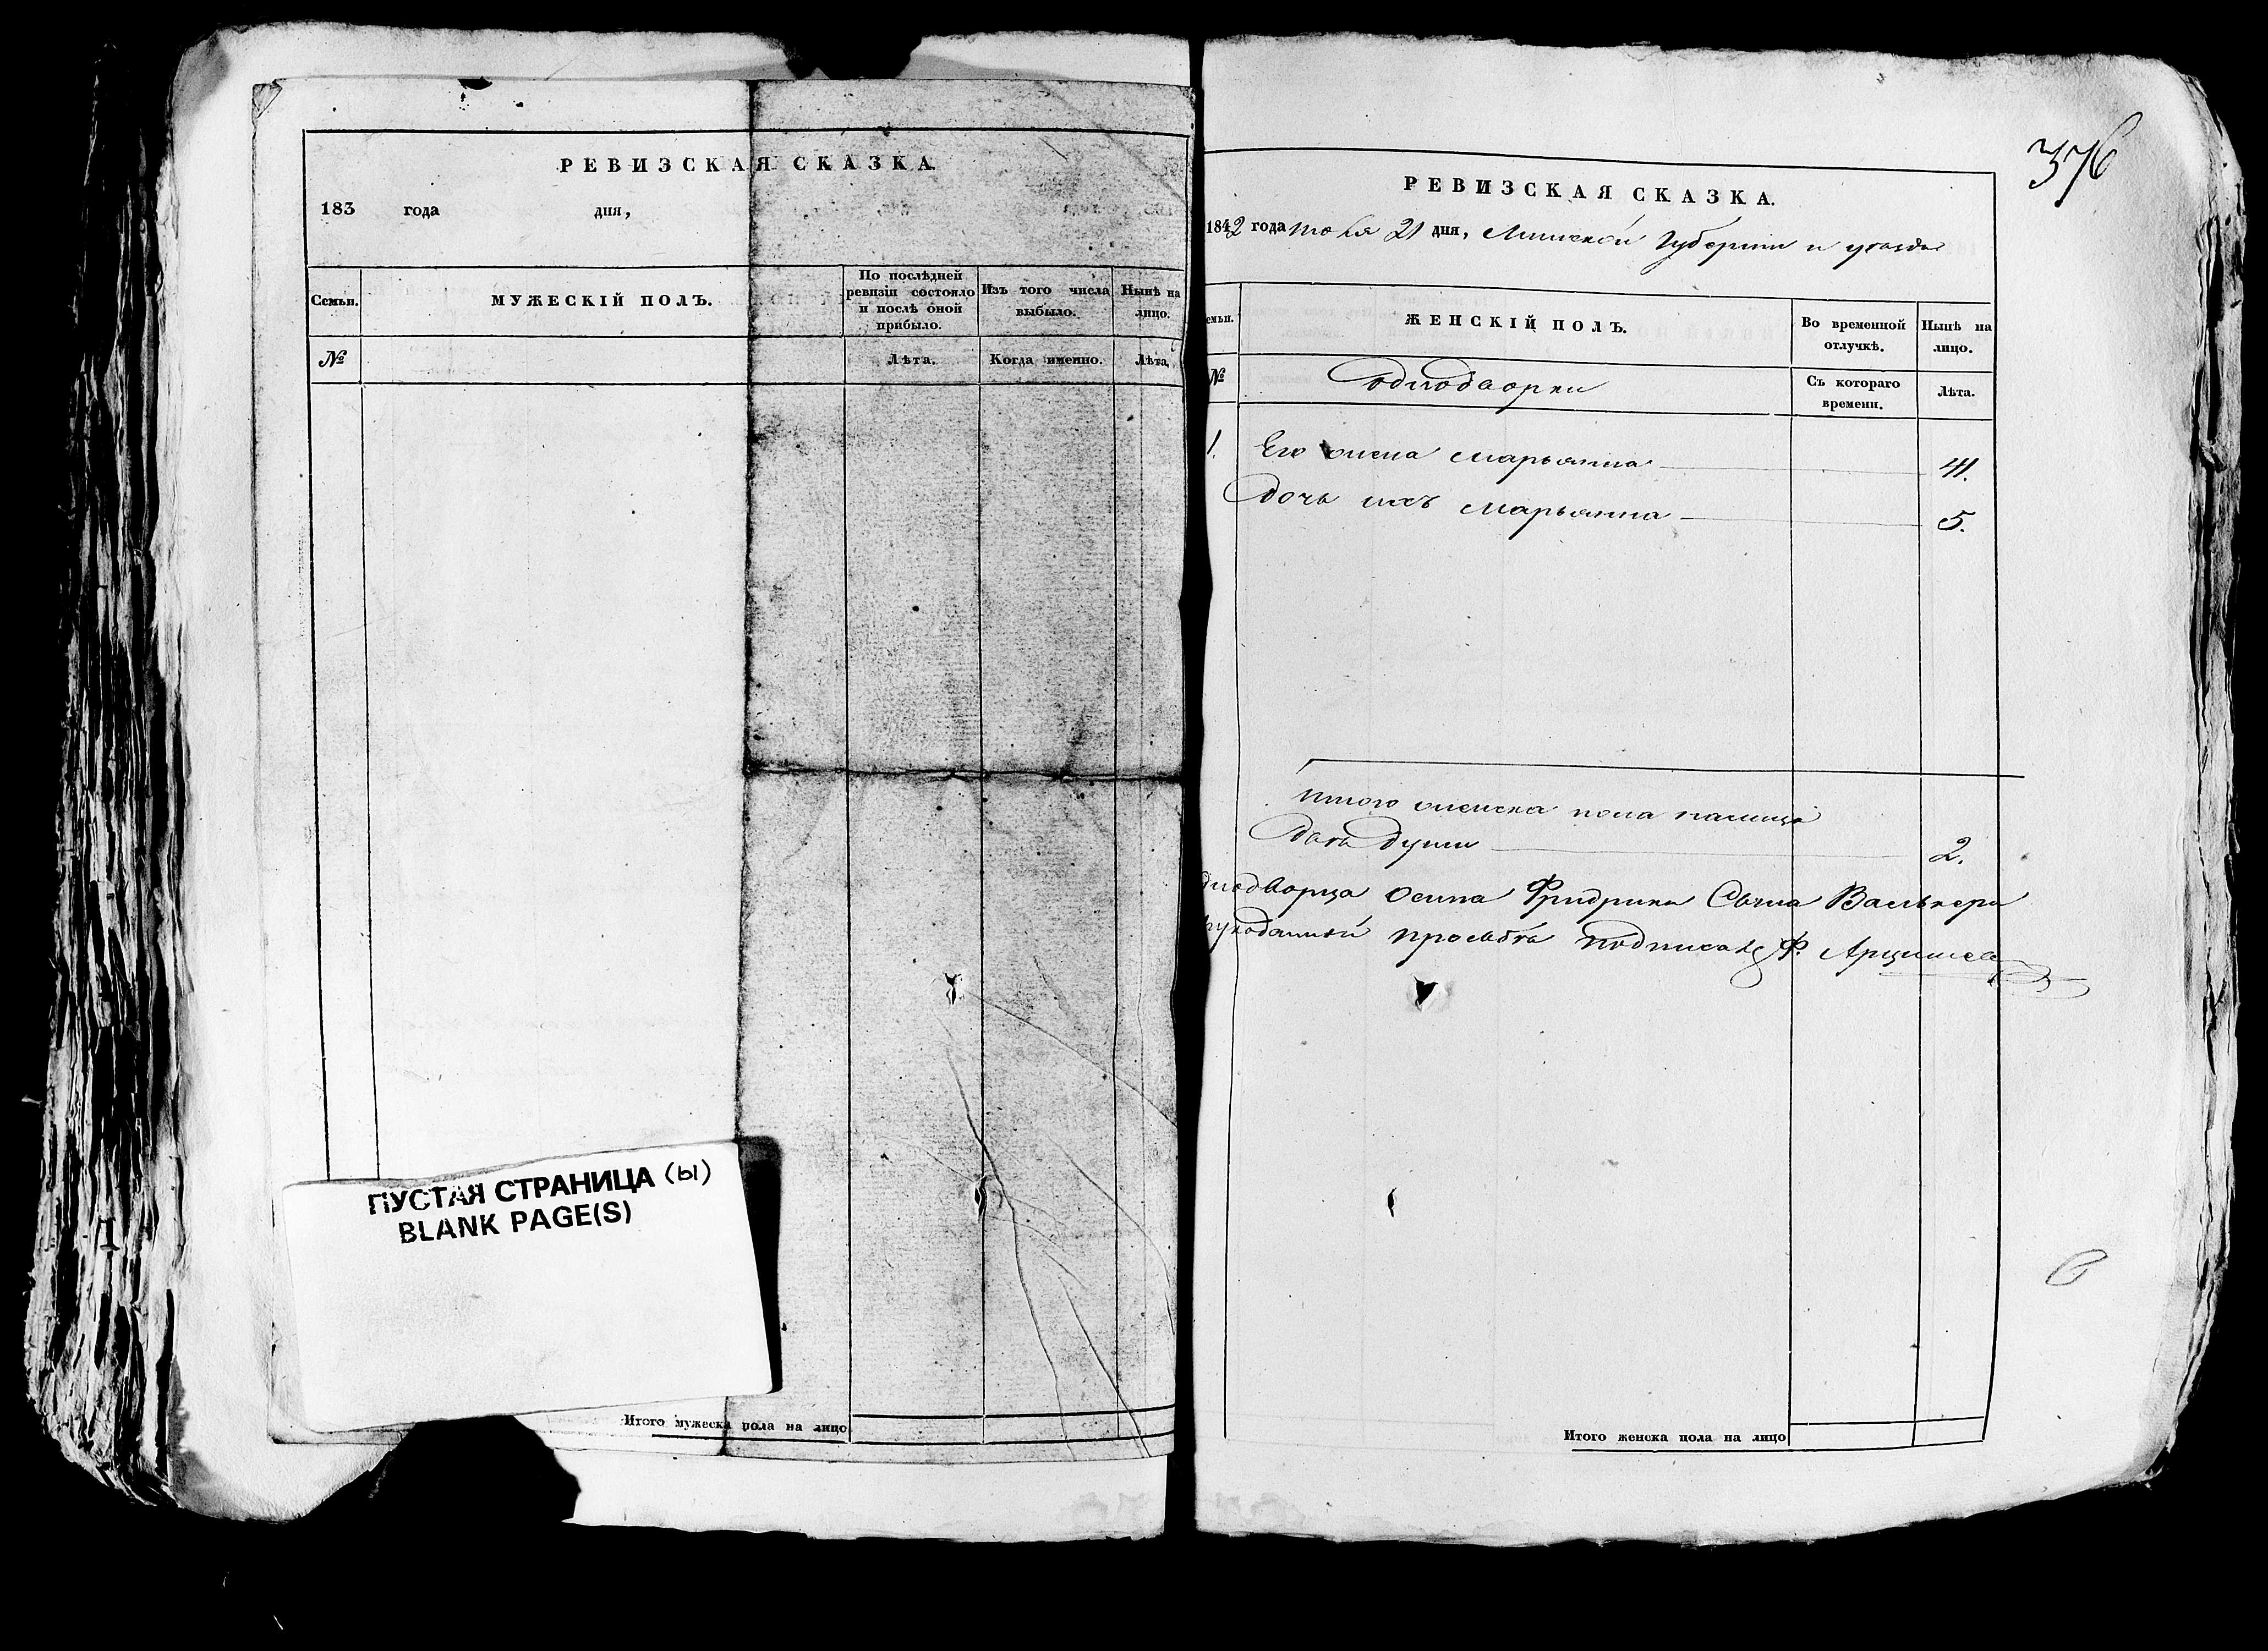 РЕВИЗСКАЯ СКАЗКА.
183 года дня,
Семьи.
МУЖЕСКІЙ ПОЛЪ.
По послѣдней ревизіи состояло и послѣ оной прибыло.
Изъ того числа выбыло.
Нынѣ на лицо.
№
Лѣта.
Когда именно.
Лѣта.
ПУСТАЯ СТРАНИЦА (ы)
BLANK PAGE(S)
Итого мужеска пола на лицо
376
РЕВИЗСКАЯ СКАЗКА.
1842 года июня 21 дня, Минской Губерніи и уезда
емьи.
ЖЕНСКІЙ ПОЛЪ.
Во временной отлучкѣ.
Нынѣ на лицо.
№
однодворки
Съ котораго времени.
Лѣта.
1. Его жена Марьянна 41.
Дочь ихъ Марьянна 5.
Итого женска пола налицо
двѣ души 2.
днодворца Осипа Фридриха Сына Валькера
рукоданной просьбѣ подписалъ Ф.
Итого женска пола на лицо